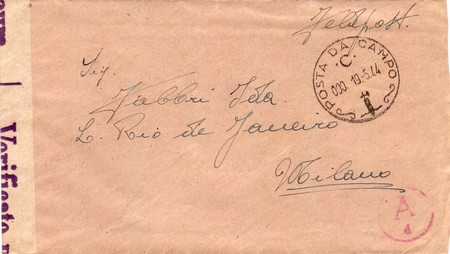 Feldpost.
POSTA DA CAMPO
C.
000 10.5.44
Sig.
Fabbri Ida
L. Rio de Janeiro
Milano
A
d
Verificato